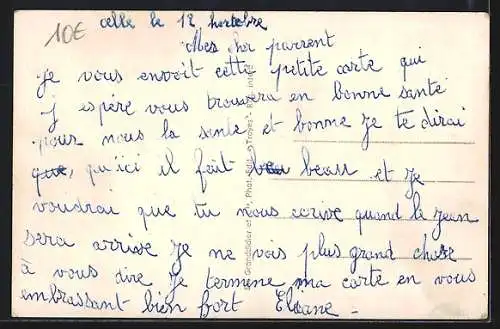 10€
celle le 12 hoctobre
Mes cher parrent
Je vous envoit cette petite carte qui
j espère vous trouvera en bonne santé
pour nous la sente et bonne je te dirai
que, qu'ici il fait beau et je
voudrai que tu nous ecrive quand le jean
sera arrive je ne vois plus grand chose
à vous dire je termine ma carte en vous
embrassant bien fort Eliane -